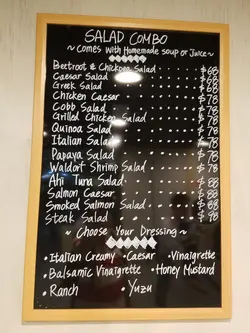 SALAD COMBO
~ comes with Homemade soup or Juice ~
Beetroot & Chickpea Salad $68
Caesar Salad $68
Greek Salad $68
Chicken Caesar $78
Cobb Salad $78
Grilled Chicken Salad $78
Quinoa Salad $78
Italian Salad $78
Papaya Salad $78
Waldorf Shrimp Salad $78
Ahi Tuna Salad $88
Salmon Caesar $88
Smoked Salmon Salad $88
Steak Salad $98
~ Choose Your Dressing ~
• Italian Creamy • Caesar • Vinaigrette
• Balsamic Vinaigrette • Honey Mustard
• Ranch • Yuzu